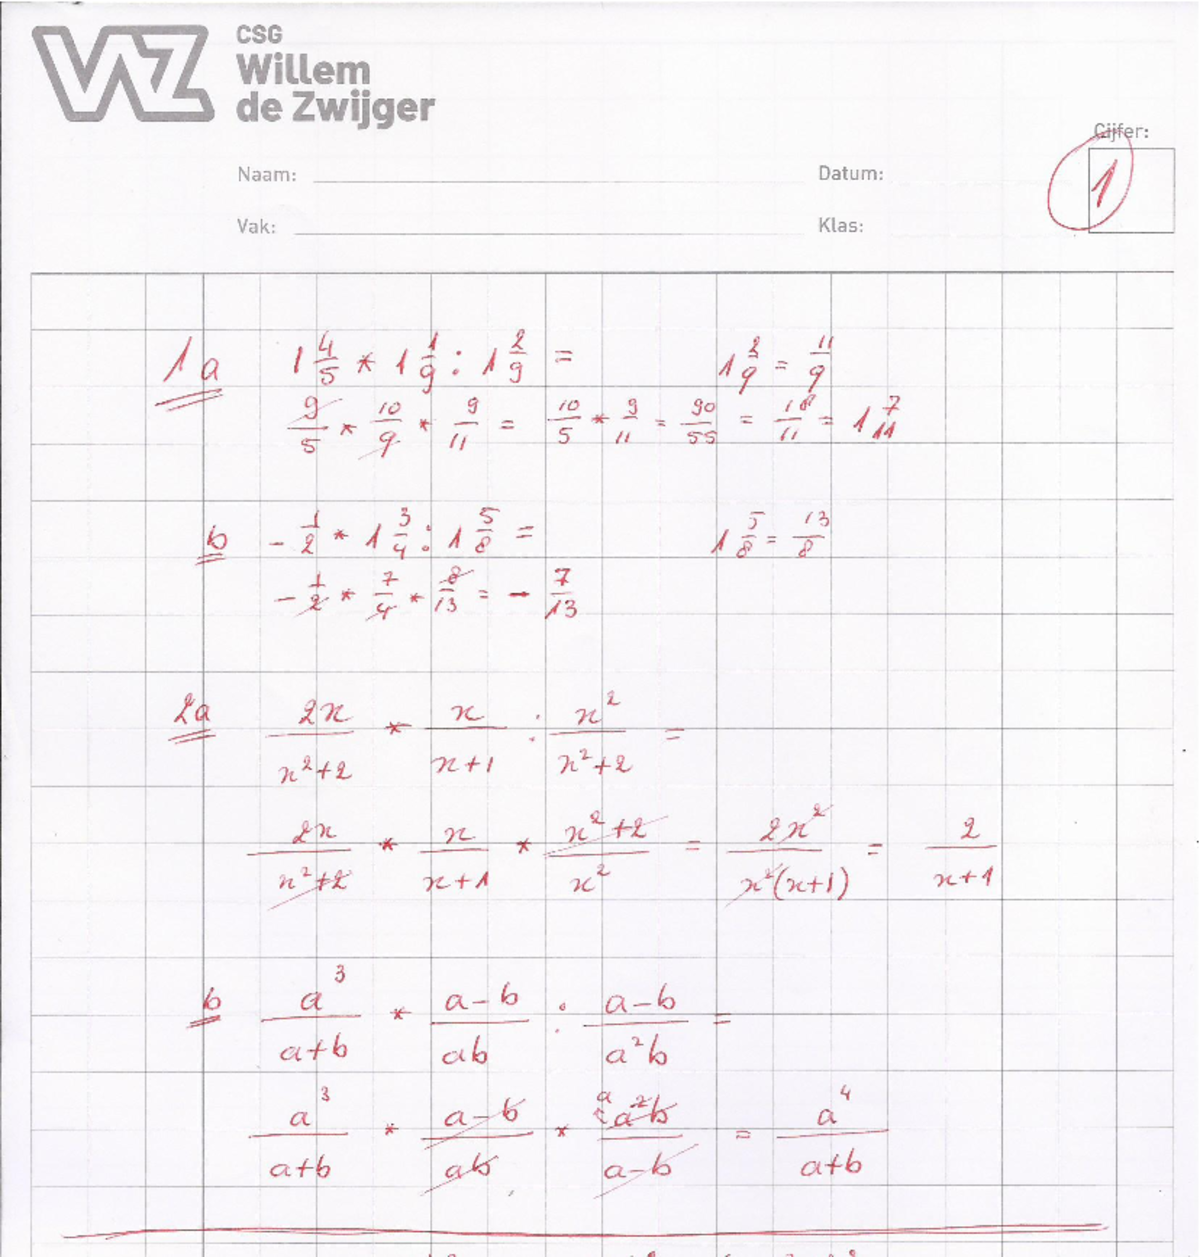 CSG
Willem
de Zwijger
Cijfer:
1
Naam:
Datum:
Vak:
Klas:
1a 1 4/5 * 1 1/9 : 1 2/9 = 1 2/9 = 11/9
9/5 * 10/9 * 9/11 = 10/5 * 9/11 = 90/55 = 18/11 = 1 7/11
b - 1/2 * 1 3/4 : 1 5/8 = 1 5/8 = 13/8
- 1/2 * 7/4 * 8/13 = - 7/13
2a 2x/(x²+2) * x/(x+1) : x²/(x²+2) =
2x/(x²+2) * x/(x+1) * (x²+2)/x² = 2x²/(x²(x+1)) = 2/(x+1)
b a³/(a+b) * (a-b)/(ab) : (a-b)/(a²b) =
a³/(a+b) * (a-b)/(ab) * a a²b/(a-b) = a⁴/(a+b)